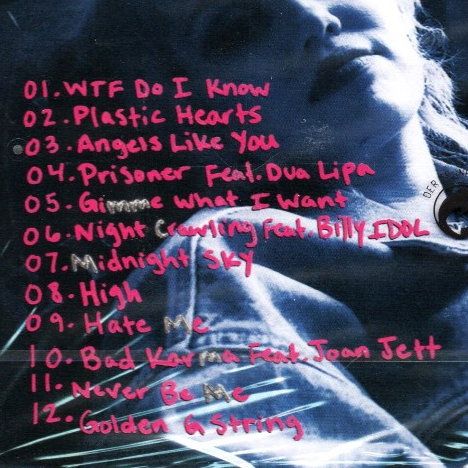 01. WTF Do I Know
02. Plastic Hearts
03. Angels Like You
04. Prisoner Feat. Dua Lipa
05. Gimme What I Want
06. Night Crawling Feat. Billy IDOL
07. Midnight Sky
08. High
09. Hate Me
10. Bad Karma Feat. Joan Jett
11. Never Be Me
12. Golden G String
DER